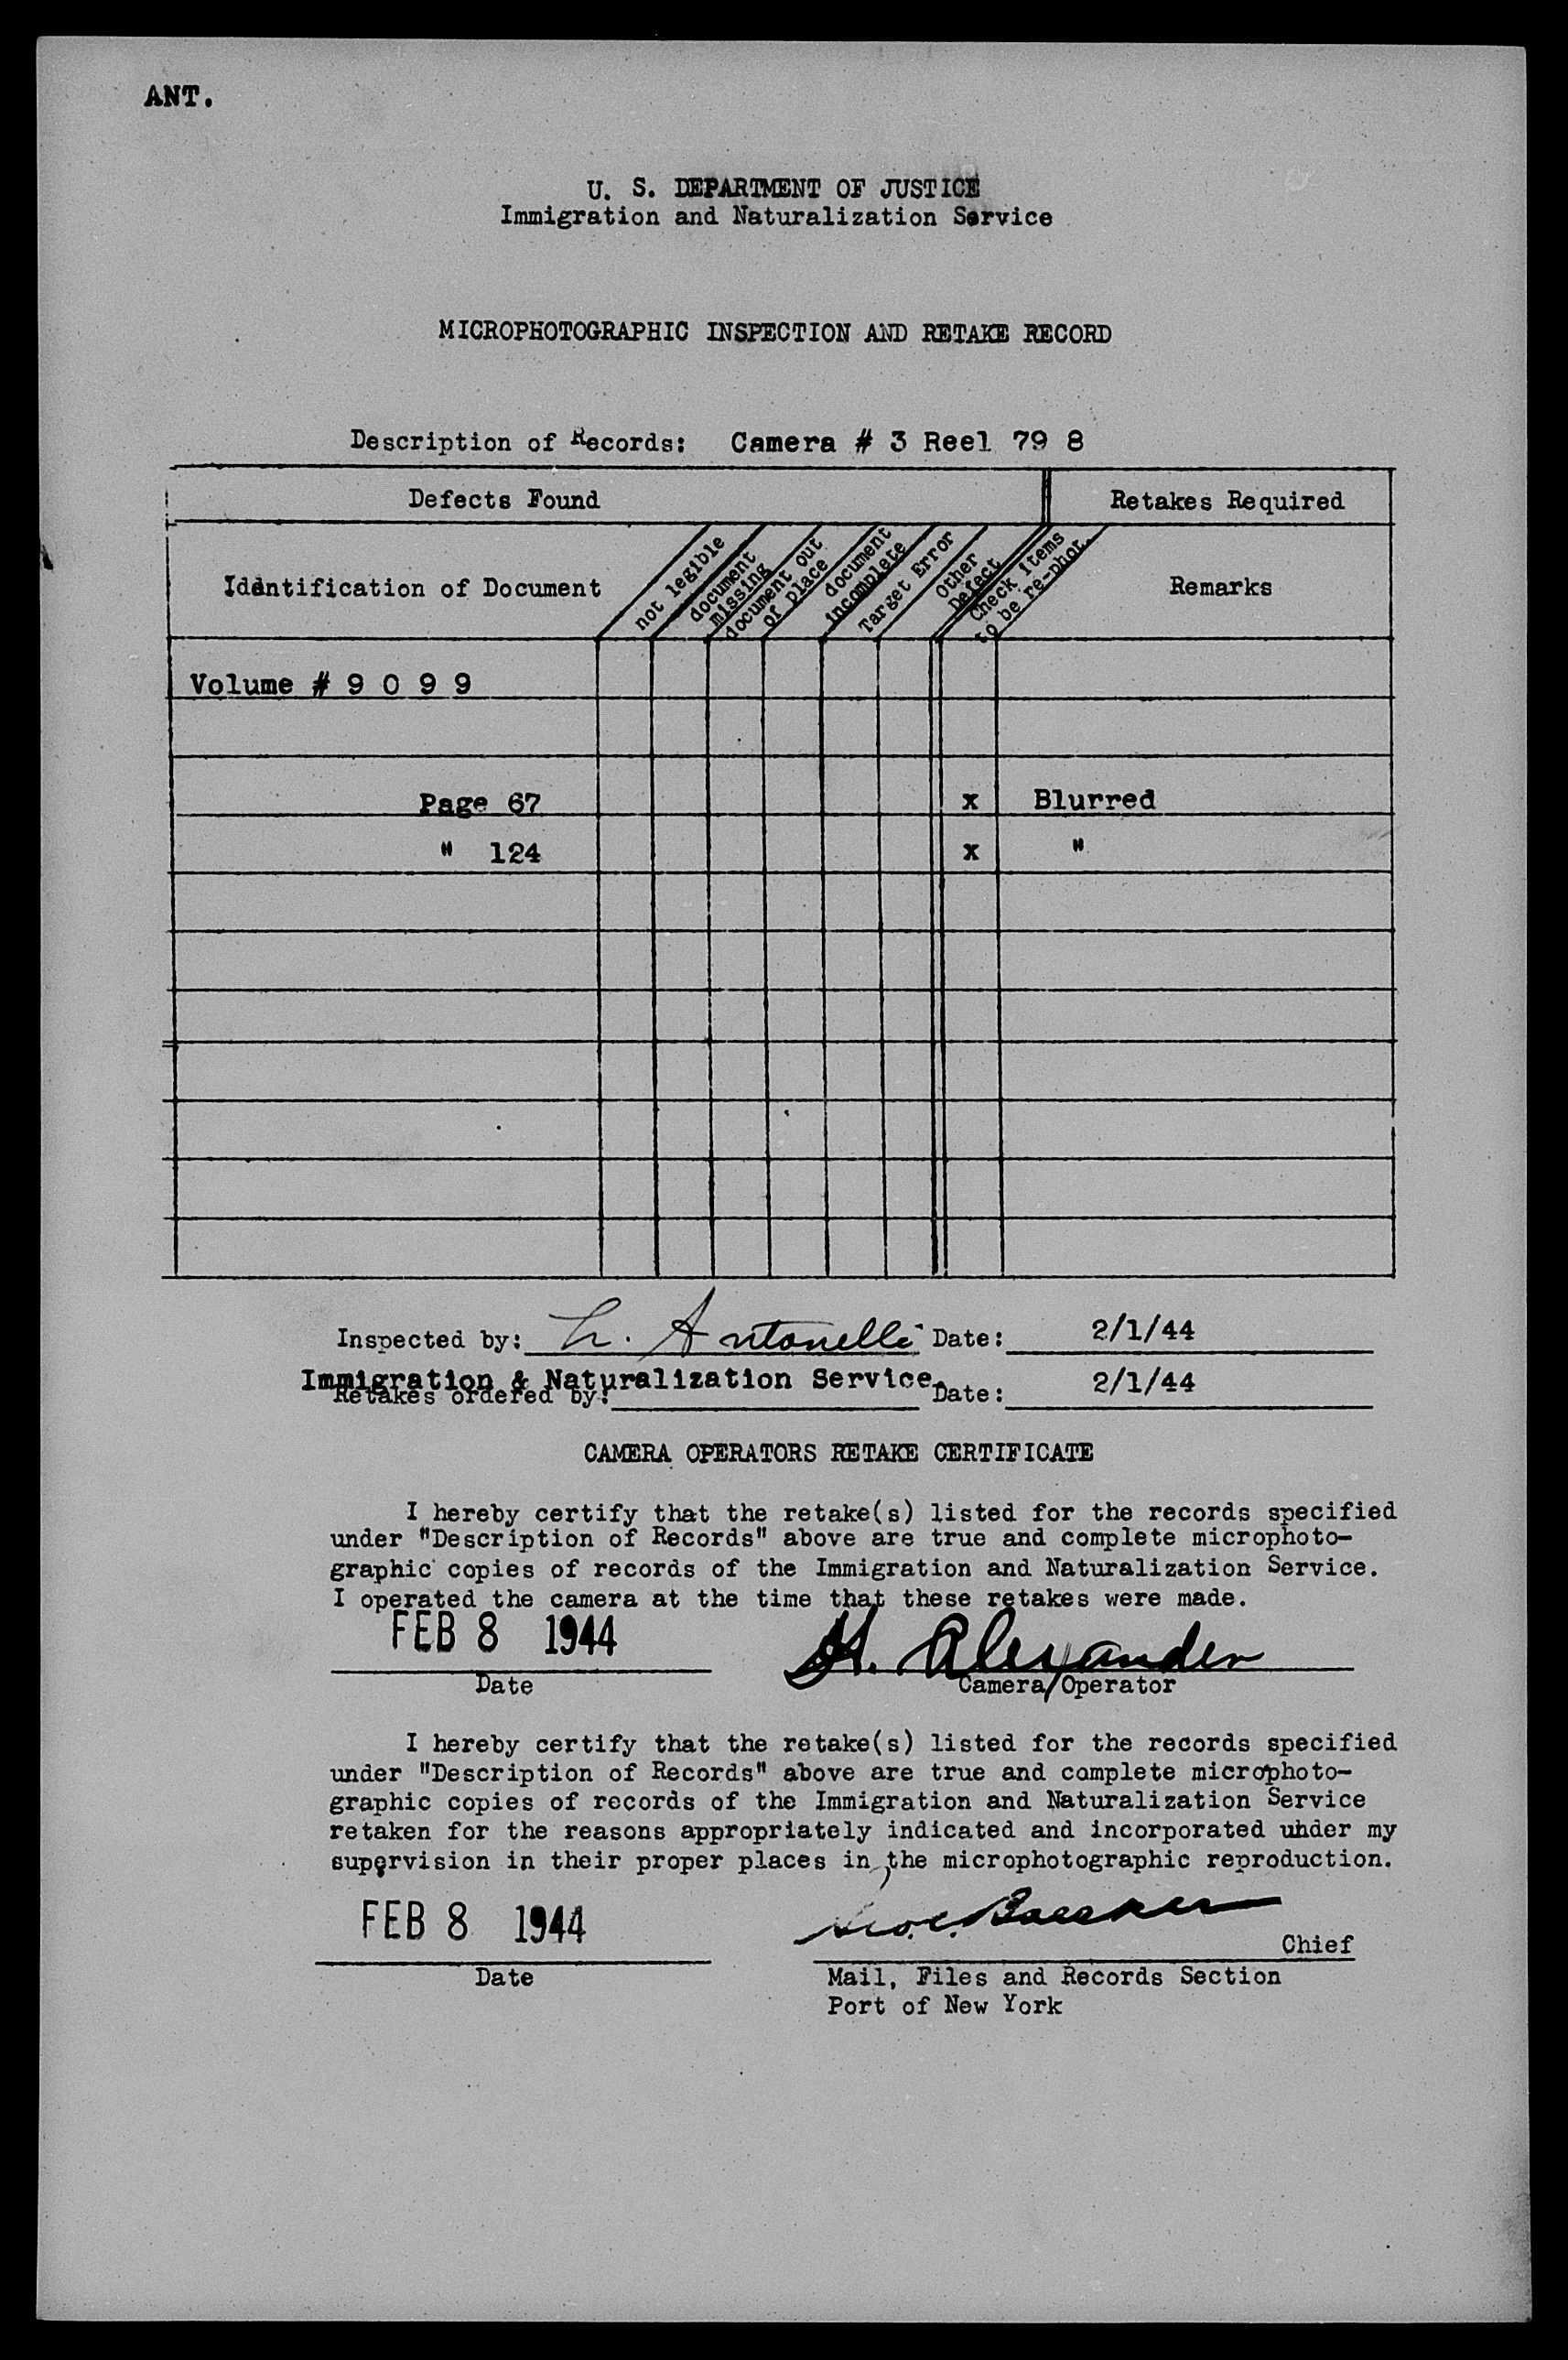 ANT.
U. S. DEPARTMENT OF JUSTICE
Immigration and Naturalization Service
MICROPHOTOGRAPHIC INSPECTION AND RETAKE RECORD
Description of Records: Camera # 3 Reel 79 8
Defects Found
Retakes Required
Identification of Document
not legible
document missing
document out of place
document incomplete
Target Error
Other Defect
Check items to be re-phot.
Remarks
Volume # 9 0 9 9
Page 67 x Blurred
" 124 x "
Inspected by: L. Antonelli Date: 2/1/44
Immigration & Naturalization Service.
Retakes ordered by: Date: 2/1/44
CAMERA OPERATORS RETAKE CERTIFICATE
I hereby certify that the retake(s) listed for the records specified
under "Description of Records" above are true and complete microphoto-
graphic copies of records of the Immigration and Naturalization Service.
I operated the camera at the time that these retakes were made.
FEB 8 1944 H. Alexander
Date Camera Operator
I hereby certify that the retake(s) listed for the records specified
under "Description of Records" above are true and complete microphoto-
graphic copies of records of the Immigration and Naturalization Service
retaken for the reasons appropriately indicated and incorporated under my
supervision in their proper places in the microphotographic reproduction.
FEB 8 1944
Chief
Date Mail, Files and Records Section
Port of New York